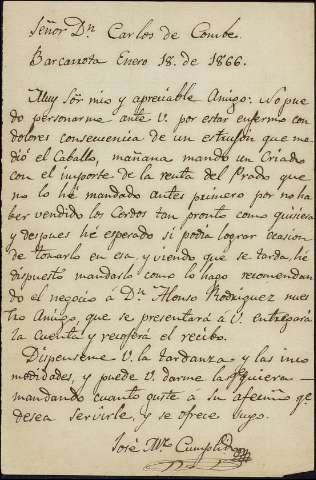 Señor Dn. Carlos de Combe.
Barcarrota Enero 18. de 1866.
Muy Sōr mio y apreciable Amigo: No pue
do personarme ante V. por estar enfermo con
dolores consecuencia de un estrujón que me
dió el Caballo, mañana mando un Criado
con el importe de la renta del Prado que
no lo hé mandado antes primero por no ha
ber vendido los Cerdos tan pronto como quisiera
y despues hé esperado si podia lograr ocasion
de tomarlo en esa, y viendo que se tarda, hé
dispuesto mandarlo como lo hago recomendan
do el negocio á Dn. Alonso Rodriguez nues
tro Amigo, que se presentará á V. entregará
la cuenta y recoferá el recibo.
Dispenseme V. la tardanza y las inco
modidades, y puede V. darme las q. quiera
mandando cuanto guste á su afecmo. qe.
desea servirle, y se ofrece suyo.
José Ma. Cumplido